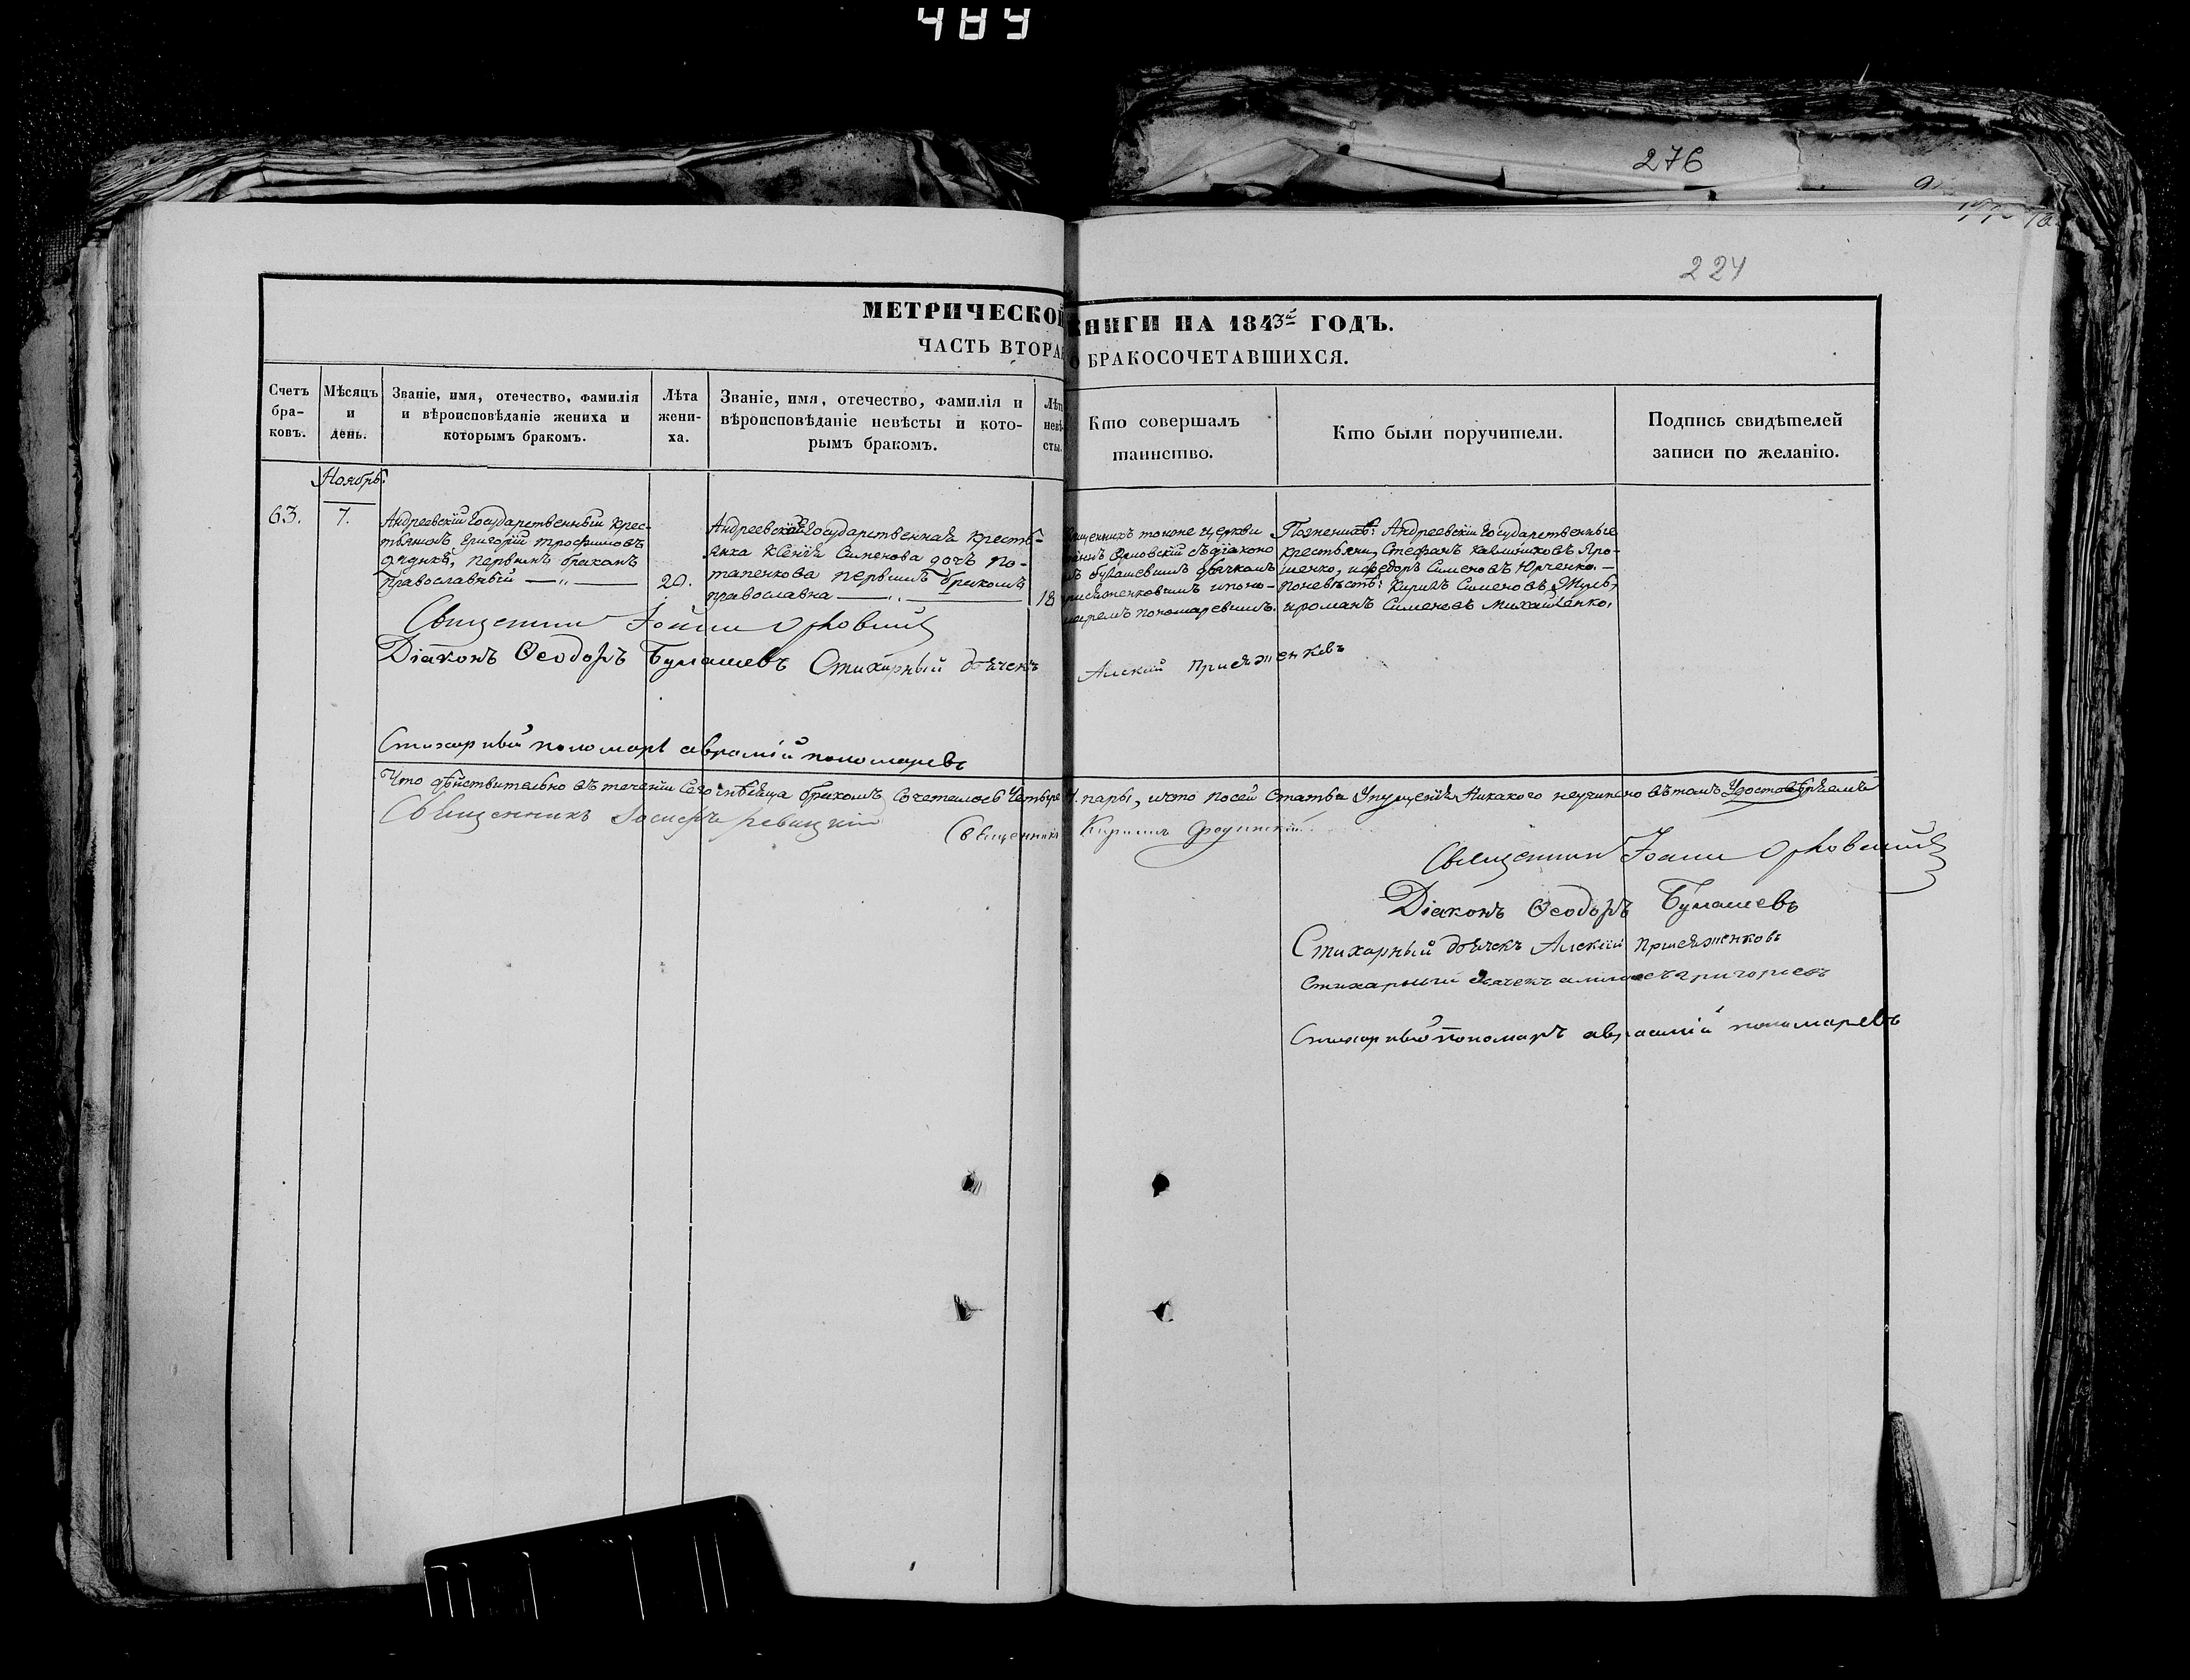 489
276
224
МЕТРИЧЕСКОЙ КНИГИ НА 1843й ГОДЪ.
ЧАСТЬ ВТОРАЯ О БРАКОСОЧЕТАВШИХСЯ.
Счетъ бра-ковъ.
Мѣсяцъ и день.
Званіе, имя, отечество, фамилія и вѣроисповѣданіе жениха и которымъ бракомъ.
Лѣта жени-ха.
Званіе, имя, отечество, фамилія и вѣроисповѣданіе невѣсты и кото-рымъ бракомъ.
Лѣта невѣ-сты.
Кто совершалъ таинство.
Кто были поручители.
Подпись свидѣтелей записи по желанію.
Ноябрь
63.
7.
Андреевскій Государственный крес-
тьянинъ Григорій Трофимовъ
первымъ бракомъ
Православный
20.
Андреевская Государственная кресть-
янка Ксенія Сименова дочь По-
тапенкова первымъ бракомъ
православна
18
Священникъ тоиоже церкви
Орловскій съ діакономъ
Бумашевымъ дьячкомъ
Присяженковымъ и поно-
маремъ Пономаревымъ.
Поженихѣ: Андреевскіи Государственные
крестьяни, Стефанъ Калиниковъ Яро-
шенко, иФедоръ Сименовъ Юрченко.—
Поневѣстѣ: Кирилъ Сименовъ
ироманъ Сименовъ Михайленко.
Священникъ Іоаннъ Орловскій
Діаконъ Ѳеодоръ Бумашевъ Стихарный дьячекъ Алексій Присяженковъ
Стихарный пономарь аврамій пономаревъ
Что дѣйствительно въ теченіи Сего мѣсяца бракомъ Сочеталось Четыре 4. пары, ичто посей Статьи Упущенія Никакого неучинено вътомъ Удостовѣряемъ
Священникъ Іосифъ Ревицкій
Священникъ Кирилъ
Священникъ Іоаннъ Орловскій
Діаконъ Ѳеодоръ Бумашевъ
Стихарный дьячекъ Алексій Присяженковъ
Стихарный дьячекъ Григорьевъ
Стихарный пономарь аврамій пономаревъ